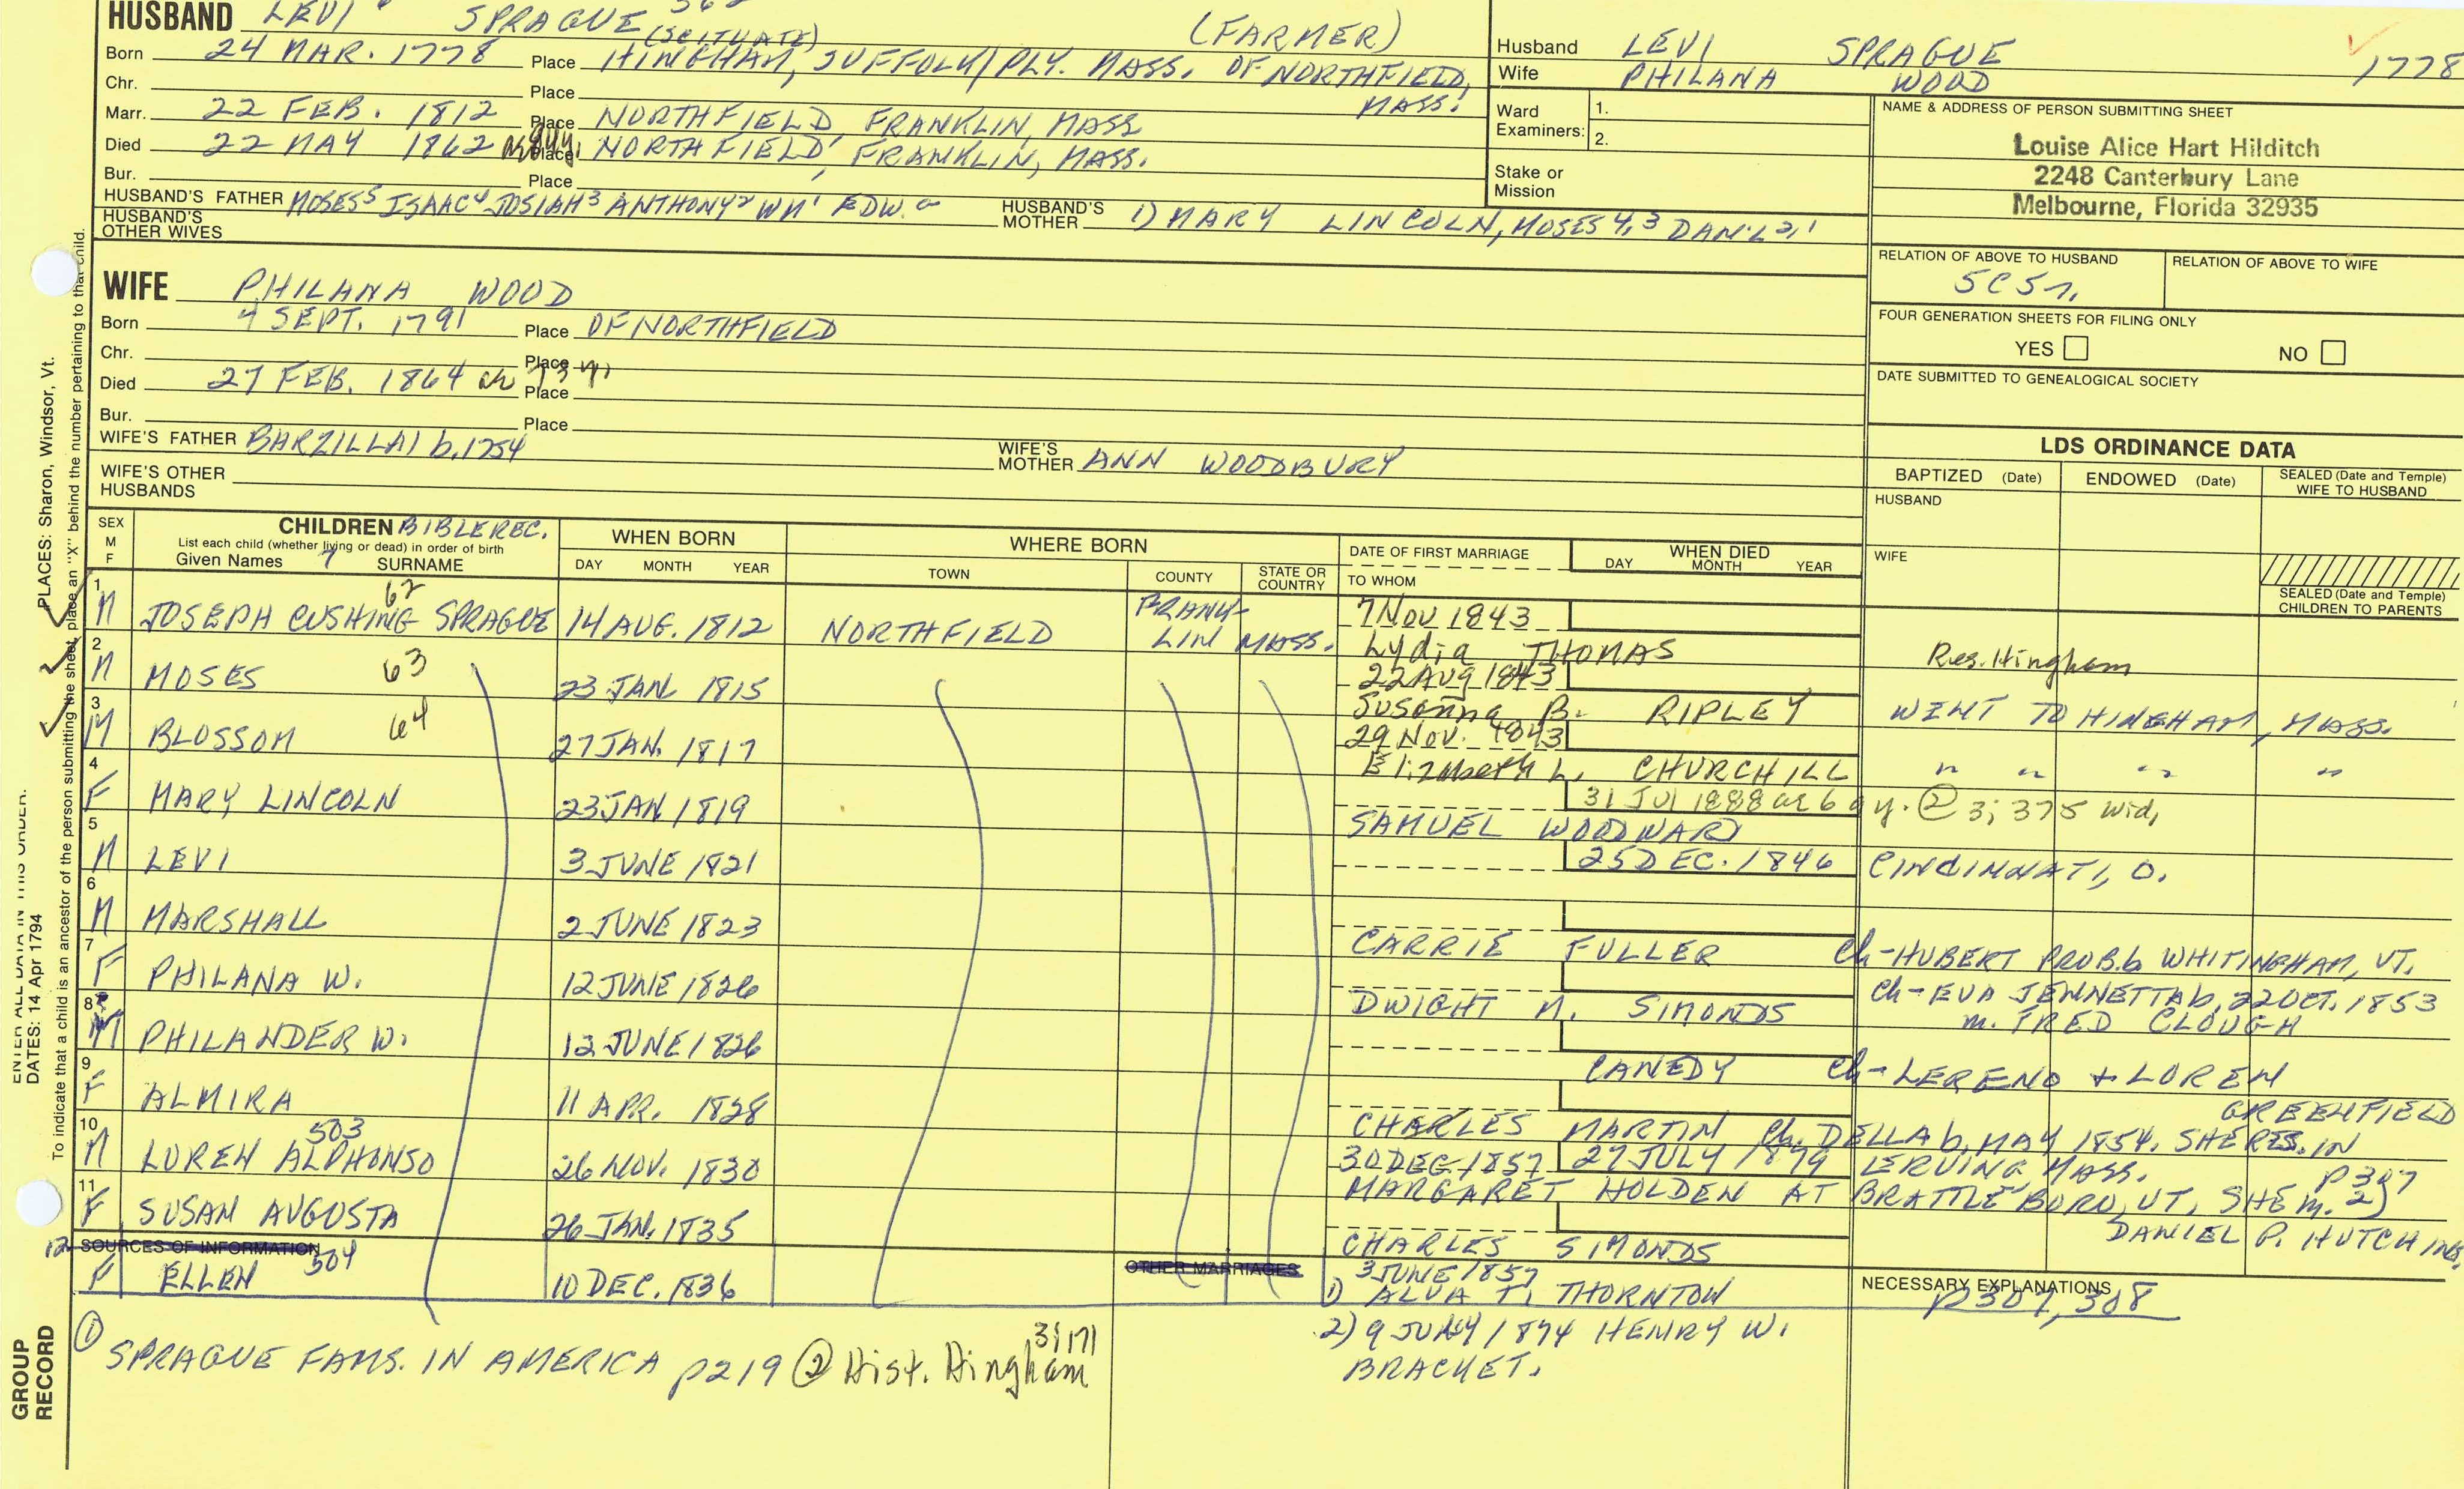 HUSBAND LEVI SPRAGUE
(SCITUATE) (FARMER)
Born 24 MAR. 1778 Place HINGHAM, SUFFOLK/PLY. MASS. OF NORTHFIELD, MASS.
Chr. Place
Marr. 22 FEB. 1812 Place NORTHFIELD, FRANKLIN, MASS
Died 22 MAY 1862 Place NORTHFIELD, FRANKLIN, MASS.
Bur. Place
HUSBAND'S FATHER MOSES5 ISAAC4 JOSIAH3 ANTHONY2 WM1 EDW.a HUSBAND'S MOTHER 1) MARY LINCOLN, MOSES 4,3 DAN'L 2,1
HUSBAND'S OTHER WIVES
Husband LEVI SPRAGUE 1778
Wife PHILANA WOOD
Ward Examiners: 1.
2.
Stake or Mission
NAME & ADDRESS OF PERSON SUBMITTING SHEET
Louise Alice Hart Hilditch
2248 Canterbury Lane
Melbourne, Florida 32935
RELATION OF ABOVE TO HUSBAND RELATION OF ABOVE TO WIFE
5C5r.
FOUR GENERATION SHEETS FOR FILING ONLY
YES NO
DATE SUBMITTED TO GENEALOGICAL SOCIETY
WIFE PHILANA WOOD
Born 4 SEPT. 1791 Place OF NORTHFIELD
Chr. Place
Died 27 FEB. 1864 Place
Bur. Place
WIFE'S FATHER BARZILLAI b.1754 WIFE'S MOTHER ANN WOODBURY
WIFE'S OTHER HUSBANDS
LDS ORDINANCE DATA
BAPTIZED (Date) ENDOWED (Date) SEALED (Date and Temple) WIFE TO HUSBAND
HUSBAND
WIFE
SEALED (Date and Temple) CHILDREN TO PARENTS
SEX M F CHILDREN BIBLE REC. WHEN BORN WHERE BORN DATE OF FIRST MARRIAGE WHEN DIED
List each child (whether living or dead) in order of birth
Given Names 7 SURNAME DAY MONTH YEAR TOWN COUNTY STATE OR COUNTRY TO WHOM DAY MONTH YEAR
1 M JOSEPH CUSHING SPRAGUE 62 14 AUG. 1812 NORTHFIELD FRANKLIN MASS. 7 Nov 1843
Lydia THOMAS Res. Hingham
2 M MOSES 63 23 JAN 1815 22 Aug 1843
Susanna B. RIPLEY WENT TO HINGHAM, MASS.
3 M BLOSSOM 64 27 JAN. 1817 29 Nov. 1843
Elizabeth L. CHURCHILL " " " "
4 F MARY LINCOLN 23 JAN 1819 31 Jul 1888 ae 69y. @ 3; 375 wid,
SAMUEL WOODWARD
5 M LEVI 3 JUNE 1821 25 DEC. 1846 CINCINNATI, O.
6 M MARSHALL 2 JUNE 1823
CARRIE FULLER Ch-HUBERT PROB. b. WHITINGHAM, VT.
7 F PHILANA W. 12 JUNE 1826
DWIGHT M. SIMONDS Ch-EVA JENNETTA b. 22 OCT. 1853
m. FRED CLOUGH
8 M PHILANDER W. 12 JUNE 1826
CANEDY Ch-LERENO + LOREN
9 F ALMIRA 11 APR. 1828 GREENFIELD
CHARLES MARTIN Ch. DELLA b. MAY 1854. SHE RES. IN
10 M LOREN ALPHONSO 503 26 NOV. 1830 30 DEC 1857 27 JULY 1879 ERVING MASS. p307
MARGARET HOLDEN AT BRATTLEBORO, VT, SHE m. 2)
11 F SUSAN AUGUSTA 26 JAN. 1835 DANIEL P. HUTCHINS
CHARLES SIMONDS
SOURCES OF INFORMATION OTHER MARRIAGES NECESSARY EXPLANATIONS
12 F ELLEN 504 10 DEC. 1836 3 JUNE 1857
1) ALVA T. THORNTON p307, 308
2) 9 JULY 1874 HENRY W.
BRACKET.
① SPRAGUE FAMS. IN AMERICA p219 ② Hist. Hingham 3;171
PLACES: Sharon, Windsor, Vt.
ENTER ALL DATA IN THIS ORDER:
DATES: 14 Apr 1794
To indicate that a child is an ancestor of the person submitting the sheet, place an "X" behind the number pertaining to that child.
GROUP RECORD